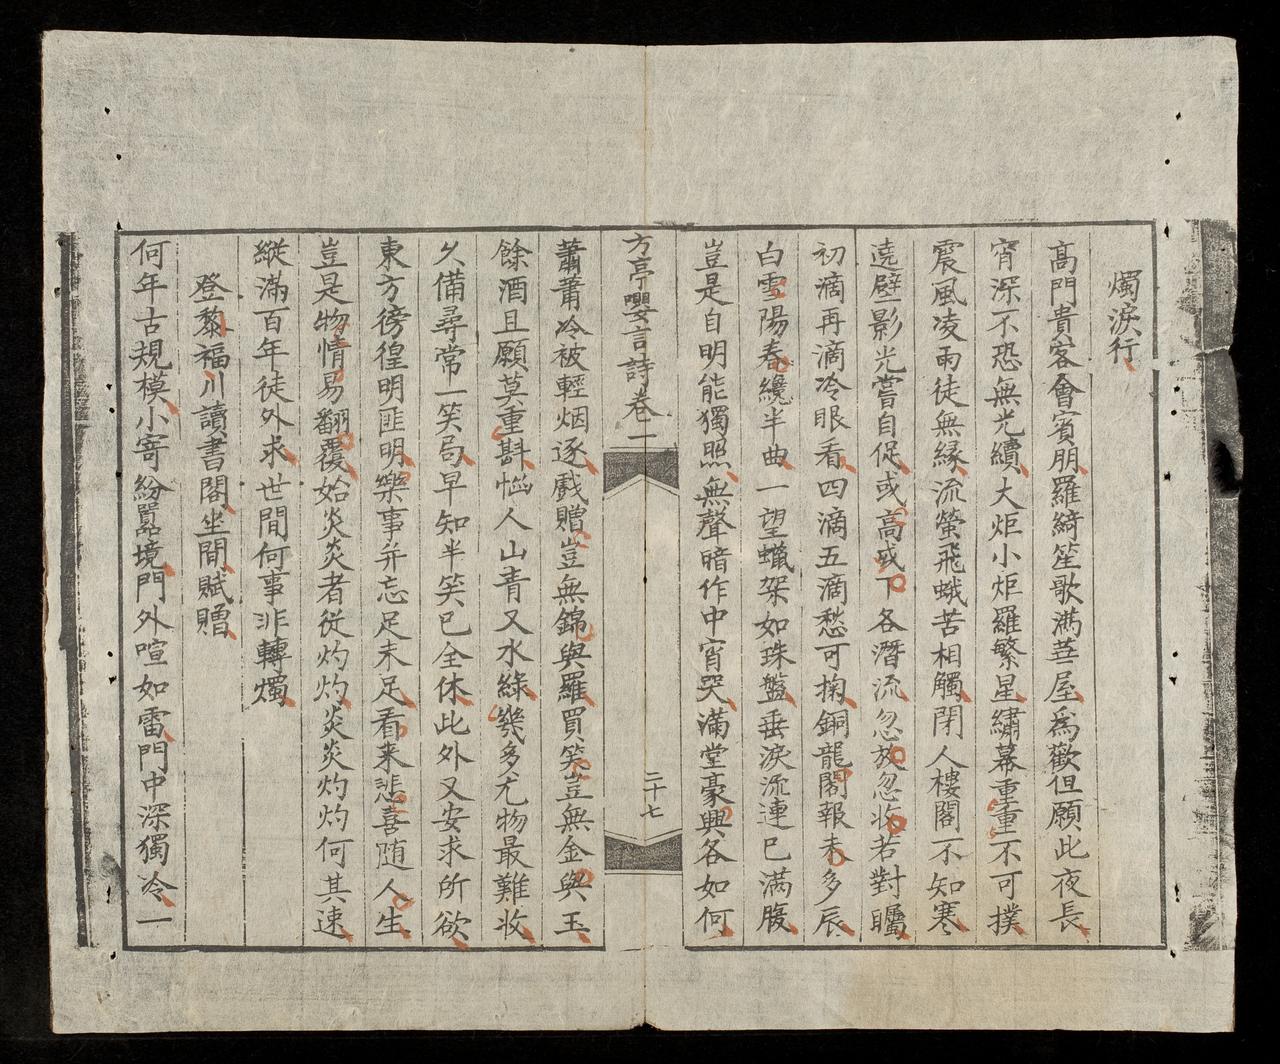 燭淚行
高門貴客會賓朋羅綺笙歌滿華屋為歡但願此夜長
宵深不恐無光續大炬小炬羅繁星繡幕重重不可撲
震風凌雨徒無緣流螢飛蛾苦相觸閉人樓閣不知寒
遶壁影光嘗自促或高或下各潛流忽放忽收若對矚
初滴再滴冷眼看四滴五滴愁可掬銅龍閣報未多辰
白雪陽春纔半曲一望蠟架如珠盤垂淚流連已滿腹
豈是自明能獨照無聲暗作中宵哭滿堂豪興各如何
方亭嚶言詩卷一
二十七
蕭蕭冷被輕烟逐戲贈豈無錦與羅買笑豈無金與玉
餘酒且願莫重斟惱人山青又水綠幾多尤物最難收
久備尋常一笑局早知半笑已全休此外又安求所欲
東方徬徨明匪明樂事并忘足未足看来悲喜随人生
豈是物情易翻覆始炎炎者從灼灼炎炎灼灼何其速
縱滿百年徒外求世間何事非轉燭
登黎福川讀書閣坐間賦贈
何年古規模小寄紛囂境門外喧如雷門中深獨冷一